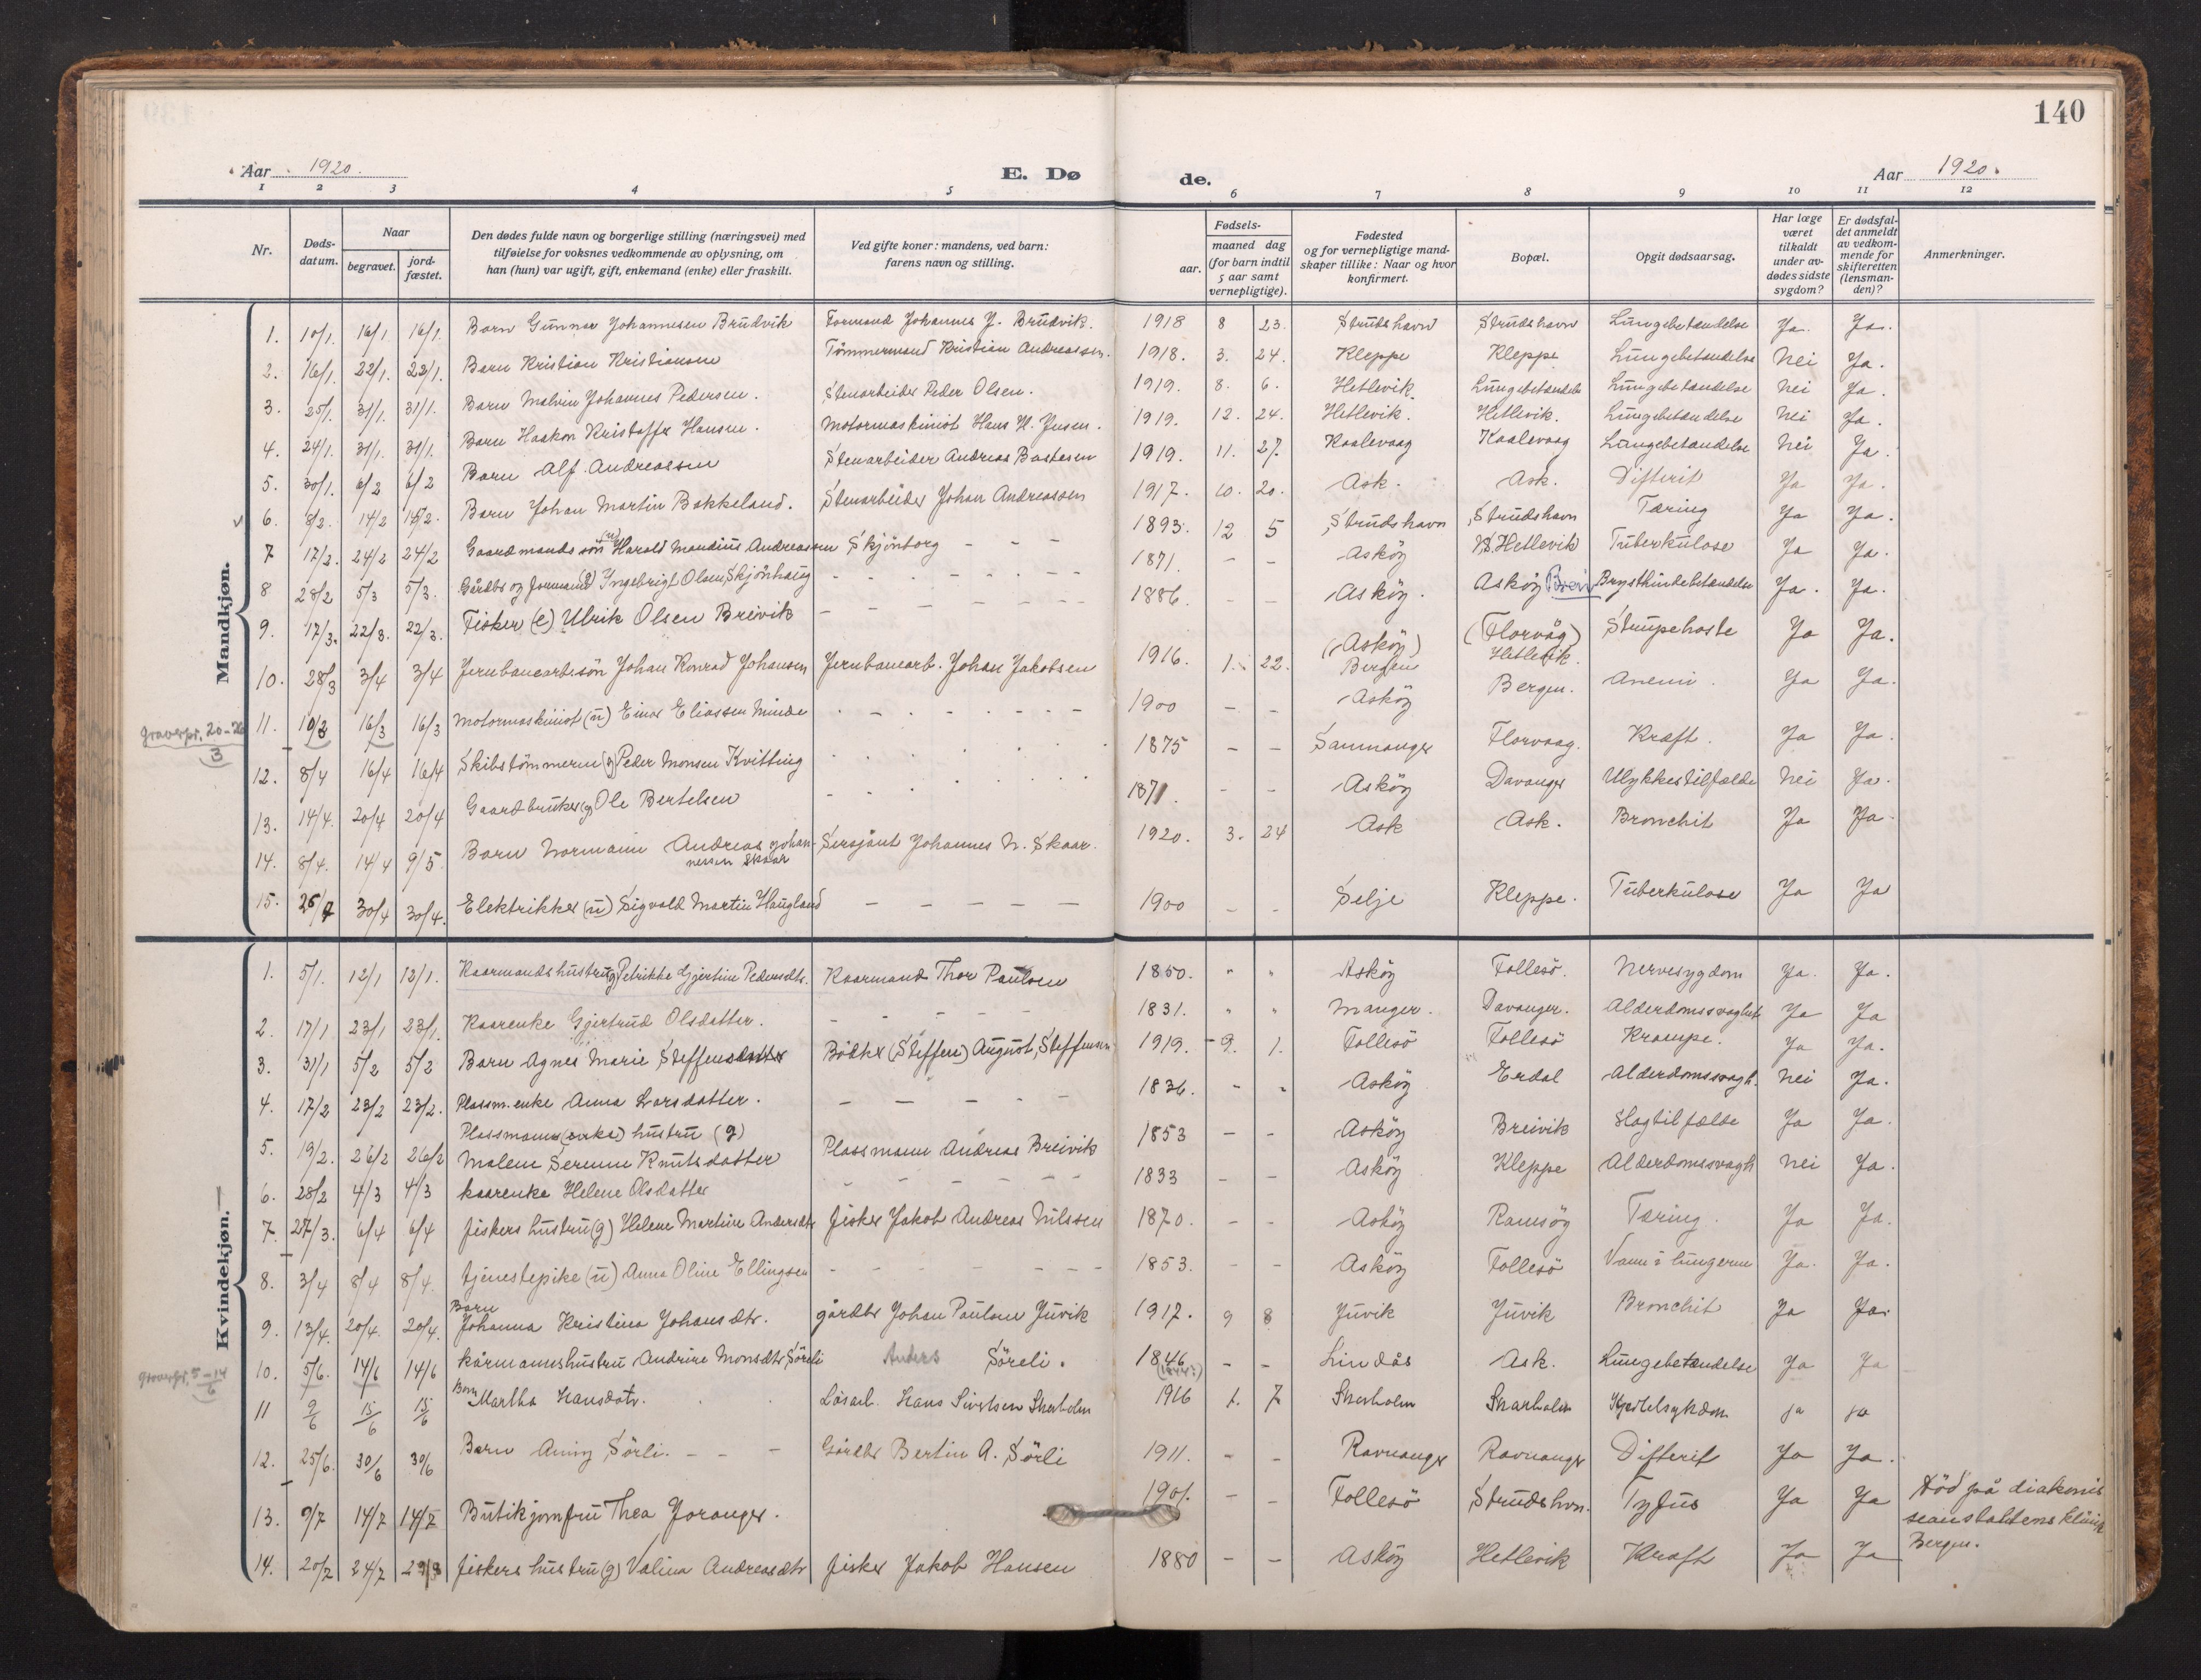 140
Aar 1920. E. Dø de. Aar 1920.
1 2 3 4 5 6 7 8 9 10 11 12
Nr.
Døds-datum.
Naar
begravet.
jord-fæstet.
Den dødes fulde navn og borgerlige stilling (næringsvei) med
tilføielse for voksnes vedkommende av oplysning, om
han (hun) var ugift, gift, enkemand (enke) eller fraskilt.
Ved gifte koner: mandens, ved barn:
farens navn og stilling.
Fødsels-
aar.
maaned dag
(for barn indtil
5 aar samt
vernepligtige).
Fødested
og for vernepligtige mand-
skaper tillike: Naar og hvor
konfirmert.
Bopæl.
Opgit dødsaarsag.
Har læge
været
tilkaldt
under av-
dødes sidste
sygdom?
Er dødsfal-
det anmeldt
av vedkom-
mende for
skifteretten
(lensman-
den)?
Anmerkninger.
Mandkjøn.
1. 10/1. 16/1 16/1. Barn Gunnar Johannesen Brudvik Formand Johannes J. Brudvik. 1918 8 23. Strudshavn Strudshavn Lungebetændelse Ja. Ja.
2. 16/1. 22/1. 22/1. Barn Kristian Kristiansen Tømmermand Kristian Andreassen. 1918. 3. 24. Kleppe Kleppe Lungebetændelse Nei Ja.
3. 25/1. 31/1. 31/1. Barn Malvin Johannes Pedersen. Stenarbeider Peder Olsen. 1919. 8. 6. Hetlevik. Lungebetændelse Lungebetændelse Nei Ja.
4. 24/1. 31/1. 31/1. Barn Haakon Kristoffer Hansen. Motormaskinist Hans H. Jensen. 1919. 12. 24. Hetlevik. Hetlevik. Lungebetændelse Nei Ja.
5. 30/1. 6/2 6/2 Barn Alf Andreassen Stenarbeider Andreas Bastesen 1919. 11. 27. Kaalevaag Kaalevaag Lungebetændelse Nei Ja.
6. 8/2. 14/2 14/2. Barn Johan Martin Bakkeland. Stenarbeider Johan Andreassen 1917. 10. 20. Ask. Ask. Difterit Ja Ja.
7 17/2. 24/2 24/2 Gaardmands søn (u) Harald Mandius Andreassen Skjönborg - - - 1893. 12 5 Strudshavn Strudshavn Tæring Ja Ja.
8 28/2 5/3 5/3. Gårdbr og Formand (g) Ingebrigt Olsen Skjönhaug - - - 1871. - - Asköy Hetlevik Tuberkulose Ja Ja.
9. 17/3. 22/3. 22/3. Fisker (e) Ulrik Olsen Breivik - - - 1886. - - Asköy. Asköy Brei Brysthindebetændelse Ja. Ja.
10. 28/3 3/4 3/4 Jernbanearb. søn Johan Konrad Johansen Jernbanearb. Johan Jakobsen 1916. 1. 22. (Asköy) Bergen (Florvåg) Hetlevik. Strupehoste Ja Ja.
graverpr. 20-26/3
11. 10/3 16/3 16/3 Motormaskinist (u) Einar Eliassen Minde - - - 1900 - - Asköy Bergen. Anemi. Ja Ja.
12. 8/4 16/4 16/4 Skibstömmerm (g) Peder Monsen Kvitting 1875 - - Samnanger Florvaag. Kræft. Ja Ja.
13. 14/4. 20/4 20/4 Gaardbruker (g) Ole Bertelsen 1871. - - Asköy Davanger Ulykkestilfælde Nei Ja.
14. 8/4. 14/4 9/5 Barn Normann Andreas Johan-nesen Skaar Sersjant Johannes N. Skaar. 1920. 3. 24 Ask Ask. Bronchit Ja Ja.
15. 25/4 30/4 30/4. Elektrikker (u) Sigvald Martin Haugland - - - 1900 - - Selje Kleppe. Tuberkulose Ja Ja
Kvindekjøn.
1. 5/1. 12/1 12/1. Kaarmandshustru (g) Petrikke Gjertine Pedersdtr. Kaarmand Thor Paulsen 1850. " " Asköy Follesö. Nervesygdom Ja. Ja.
2. 17/1 23/1 23/1. Kaarenke Gjertrud Olsdatter. - - - 1831. " " Manger. Davanger. Alderdomssvaghet Ja Ja
3. 31/1 5/2 5/2 Barn Agnes Marie Steffensdatter Bødker (Steffen) August Steffensen 1919. 9. 1. Follesö Follesö Krampe. Ja Ja.
4. 17/2 23/2 23/2. Plassm. enke Anna Larsdatter. - - - 1836. - - Asköy Erdal Alderdomssvagh. Nei Ja.
5. 19/2. 26/2 26/2 Plassmanns (enke) hustru (g) Malene Serenne Knutsdatter Plassmann Andreas Breivik 1853 - - Asköy Breivik Slagtilfælde Ja Ja.
6. 28/2 4/3 4/3 kaarenke Helene Olsdatter - - - 1833 - - Asköy Kleppe Alderdomssvagh Nei Ja.
7. 27/3. 6/4 6/4 fiskers hustru (g) Helene Martine Andersdtr fisker Jakob Andreas Nilssen 1870. - - Asköy Ramsöy Tæring. Ja Ja.
8. 3/4 8/4 8/4. tjenestepike (u) Anna Oline Ellingsen - - - 1853. - - Asköy Follesö Vann i lungerne Ja. Ja.
9. 13/4. 20/4. 20/4. Barn Johanna Kristina Johansdtr. gårdbr Johan Paulsen Juvik 1917. 9 8 Juvik Juvik Bronchit Ja Ja.
graverpr. 5-14/6
10. 5/6. 14/6 14/6 kårmannshustru Andrine Monsdtr Söreli Anders Söreli. 1846 - - Lindås Ask. Lungebetændelse Ja Ja
11 9/6 15/6 15/6 Barn Martha Hansdatr. Løsarb. Hans Sivertsen Skarholm 1916 1. 7 Skarholm Skarholm Kjertelsykdom ja ja
12. 25/6. 30/6 30/6 Barn Anny Sörli. - - - Gårdbr Bertin A. Sörli 1911. - - Ravnanger Ravnanger Difterit Ja Ja.
13. 9/7 14/7 14/7 Butikjomfru Thea Joranger. 1901. - - Follesö Strudshvn. Tyfus Ja Ja Död på diakonis seanstaltens klinik Bergen.
14. 20/7 24/7 29/8 fiskers hustru (g) Valina Andreasdtr fisker Jakob Hansen 1880 - - Asköy Hetlevik Kræft Ja Ja